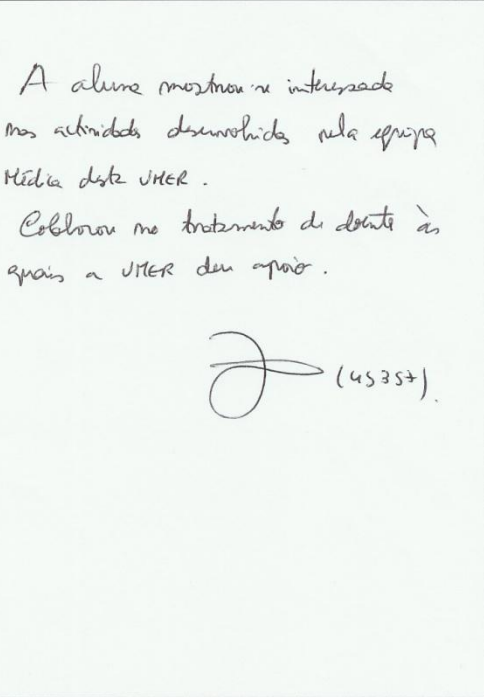 A aluna mostrou-se interessada
nas actividades desenvolvidas pela equipa
Médica desta VMER.
Colaborou no tratamento de doente às
quais a VMER deu apoio.
(45357).